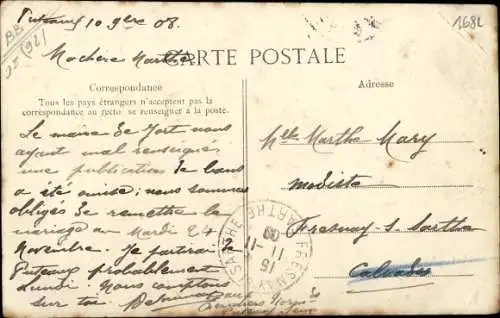 Puteaux 10 9bre 08.
Ma chère Marthe
CARTE POSTALE
1682
Correspondance
Tous les pays étrangers n'acceptent pas la
correspondance au recto se renseigner à la poste.
Le maire de Fort nous
ayant mal renseignés
une publication de bans
a été omise; nous sommes
obligés de remettre le
mariage au Mardi 24
Novembre. Je partirai
Puteaux probablement
Lundi. Nous comptons
sur toi.
Adresse
Mlle Marthe Mary
modiste
Fresnay-s-Sarthe
Calvados
FRESNAY SARTHE